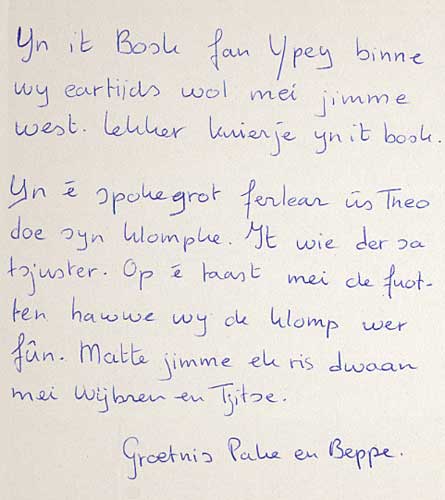 Yn it Bosk fan Ypey binne
wy eartijds wol mei jimme
west. Lekker kuierje yn it bosk.
Yn é spokegrot ferlear ús Theo
doe syn klompke. It wie der sa
tsjuster. Op é taast mei de fuot-
ten hawwe wy de klomp wer
fûn. Matte jimme ek ris dwaan
mei Wijbren en Tjitse.
Groetnis Pake en Beppe.